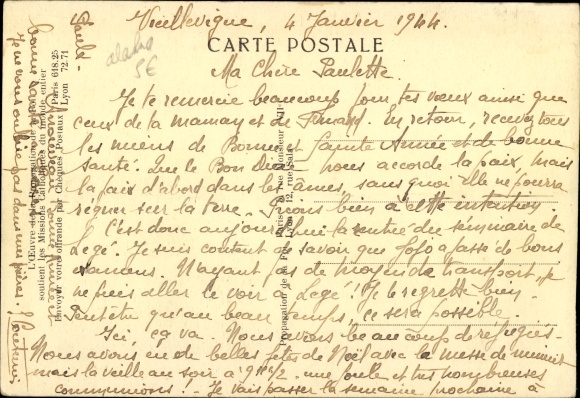 Vieillevigne, 4 Janvier 1944.
CARTE POSTALE
Ma Chère Paulette.
Je te remercie beaucoup pour tes vœux ainsi que
ceux de ta maman et de. En retour, recevez tous
les miens de Bonne et Sainte Année et de bonne
santé. Que le Bon Dieu nous accorde la paix, mais
la paix d'abord dans les âmes, sans quoi elle ne pourra
régner sur la terre. Prions bien à cette intention
C'est donc aujourd'hui la rentrée du séminaire de
Legé. Je suis content de savoir que Jojo a passé de bons
examens. N'ayant pas de moyen de transport, je
ne puis aller le voir à Legé! Je le regrette bien.
Peut être qu'au beau temps, ce sera possible.
Ici, ça va. Nous avons beaucoup de réfugiés.
Nous avons eu de belles fêtes de Noël avec la messe de minuit
mais la veille au soir à 9H1/2. une foule et très nombreuses
communions!.. Je vais passer la semaine prochaine à
bonne santé
Je ne vous oublie pas dans mes prières.
L'Œuvre de la Propagation de la Foi
soutient les Missions Catholiques du monde entier
Envoyer votre offrande par Chèques Postaux
Paris 618.25
Lyon 72.71
Propagation de la Foi
Paris, 5, rue Monsieur
Lyon, 12, rue Sala
5€